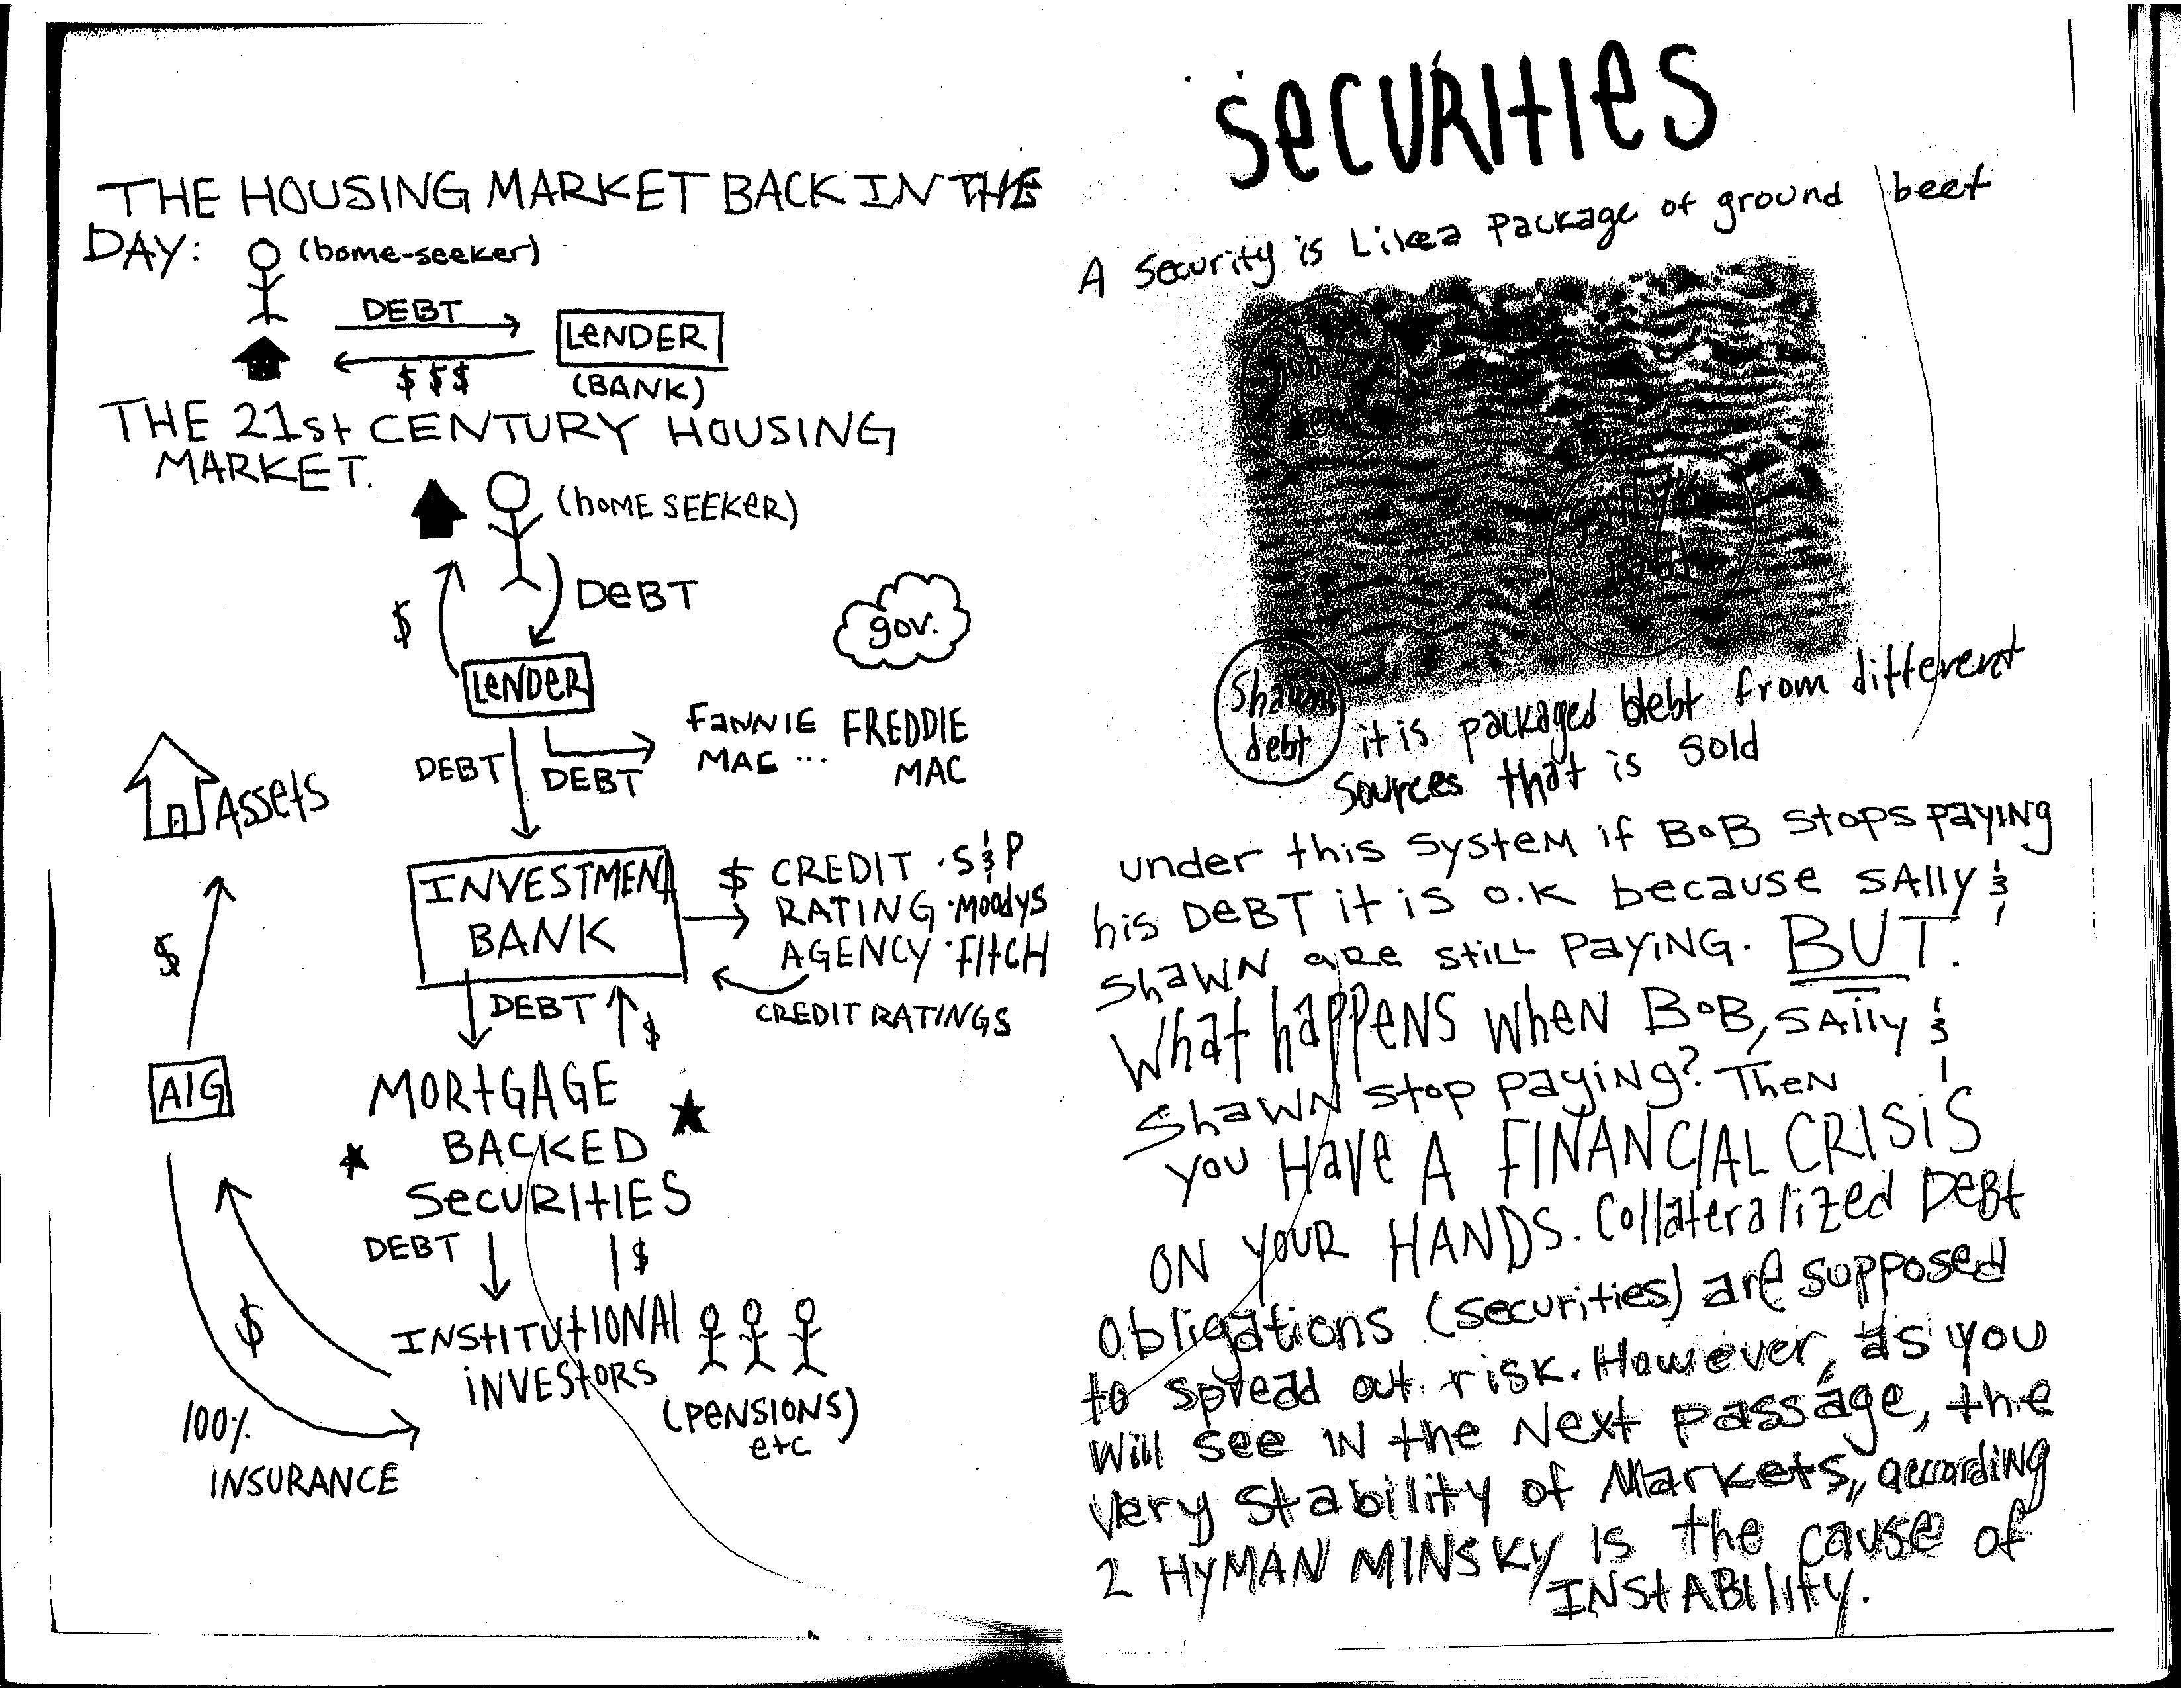 THE HOUSING MARKET BACK IN THE
DAY:
(home-seeker)
DEBT
LENDER
$$$
(BANK)
THE 21st CENTURY HOUSING
MARKET.
(home SEEKER)
DEBT
$
gov.
LENDER
FANNIE FREDDIE
MAE ... MAC
DEBT
DEBT
Assets
INVESTMENT
BANK
$ CREDIT · S & P
RATING · Moodys
AGENCY · FITCH
$
DEBT
$
CREDIT RATINGS
AIG
MORTGAGE
BACKED
SECURITIES
DEBT
$
$
INSTITUTIONAL
INVESTORS
(PENSIONS)
etc
100%
INSURANCE
SECURITIES
A security is Like a Package of ground beef
Bob's
debt
Sally's
debt
Shawns
debt
it is packaged debt from different
Sources that is sold
under this System if BOB stops paying
his DEBT it is O.K because SAlly &
ShaWN are still paying. BUT.
What happens when BOB, SAlly &
ShaWN stop paying? Then
you Have A FINANCIAL CRISIS
ON YOUR HANDS. Collateralized Debt
Obligations (securities) are supposed
to spread out risk. However, as you
Will see in the Next passage, the
Very Stability of Markets, according
2 HYMAN MINSKY is the cause of
INSTABILITY.